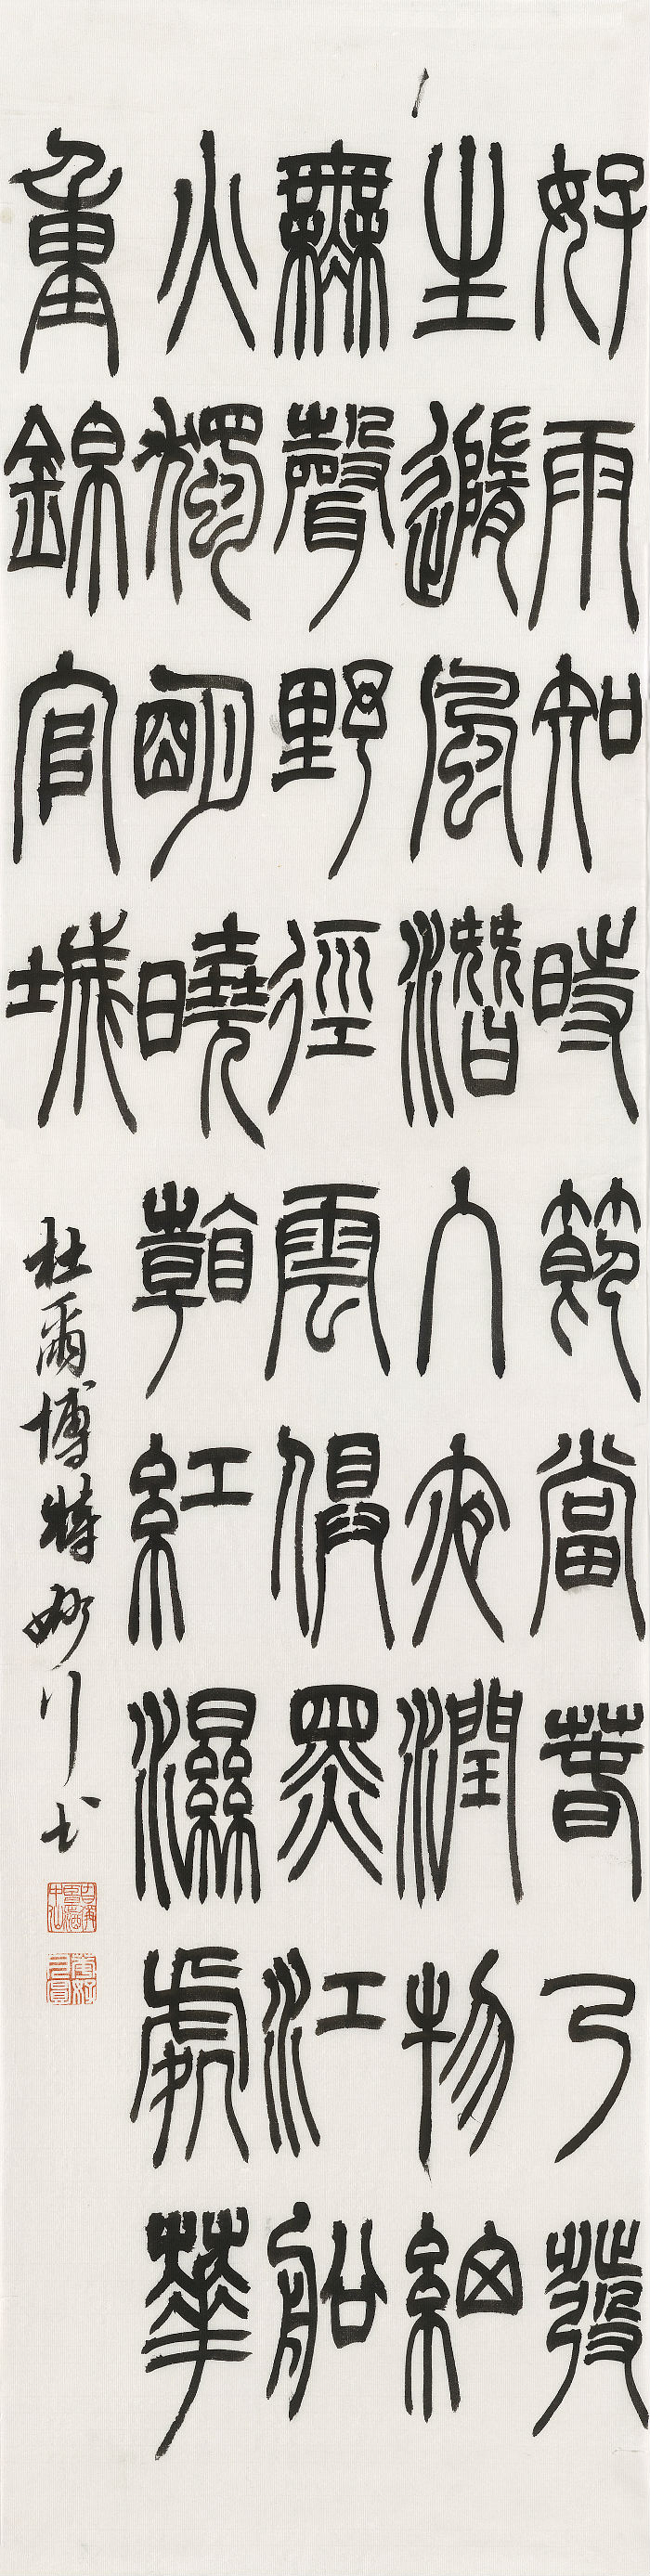 好雨知時節當春乃發
生隨風潛入夜潤物細
無聲野徑雲俱黑江船
火獨明曉看紅濕處華
重錦官城
杜爾博特妙行書